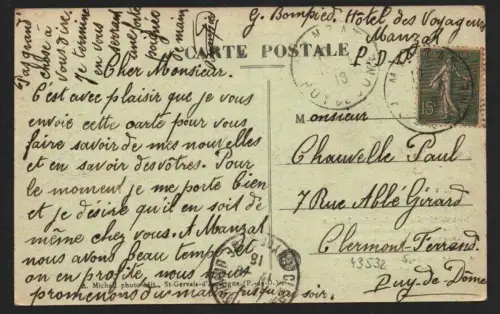 G. Bompied, Hôtel des Voyageurs
Manzat
P-D-D
CARTE POSTALE
Cher Monsieur.
C'est avec plaisir que je vous
envoie cette carte pour vous
faire savoir de mes nouvelles
et en savoir des vôtres. Pour
le moment je me porte bien
et je désire qu'il en soit de
même chez vous. A Manzat
nous avons beau temps et
on en profite, nous nous
promenons du matin jusqu'au soir.
Pas grand
chose à
vous dire.
Je termine
en vous
serrant
une forte
poignée
de main
Monsieur
Chauvelle Paul
7 Rue Abbé Girard
Clermont-Ferrand
Puy-de-Dôme
43532
PUY DE DOME
15c
A. Michel photo-édit., St-Gervais-d'Auvergne (P.-de-D.)